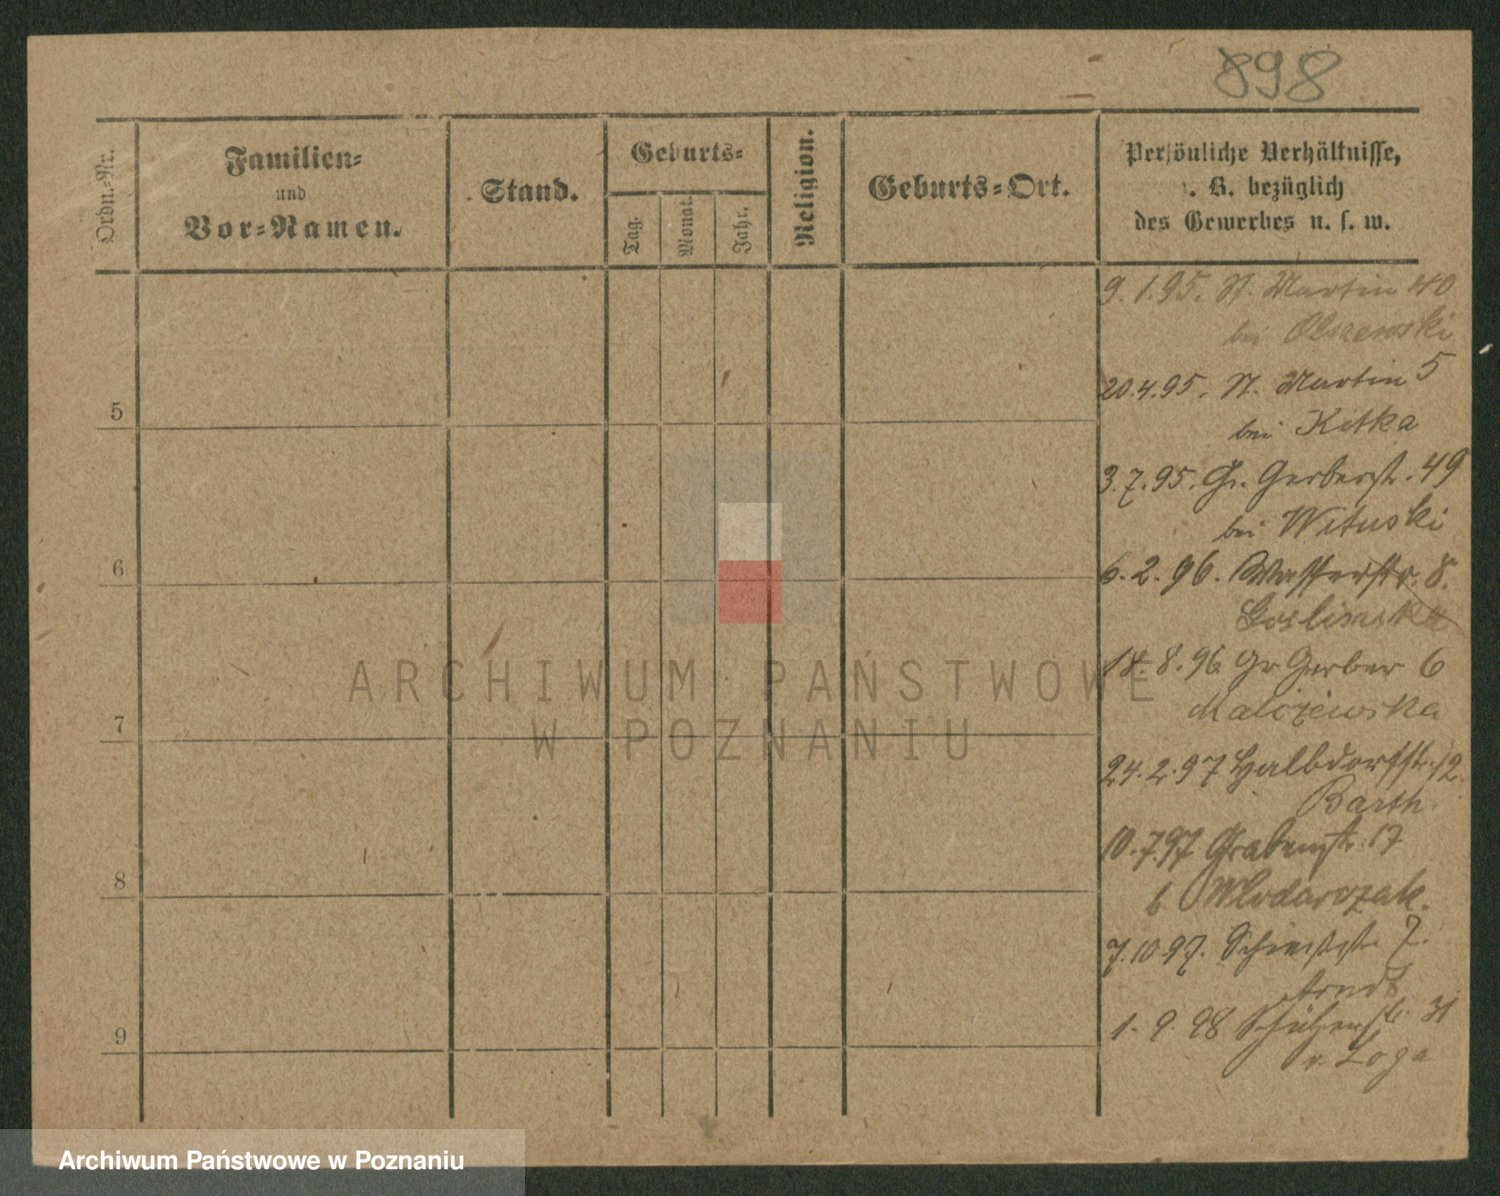 898
Ordn.-Nr.
Familien-
und
Vor-Namen.
Stand.
Geburts-
Tag.
Monat.
Jahr.
Religion.
Geburts-Ort.
Persönliche Verhältnisse,
z. B. bezüglich
des Gewerbes u. s. w.
9.1.95. St. Martin 40
bei Olszewski
20.4.95. St. Martin 5
bei Kitka
5
3.7.95. Gr. Gerberstr. 49
bei Wituski
6
6.2.96. Wasserstr. 8.
Goslinska
18.8.96 Gr Gerber 6
7
24.2.97 Halbdorfstr. 12.
Barth.
10.7.97 Grabenstr. 17
8
b Wlodarczak.
7.10.97. Schiesstr. 7.
Arndt
1.9.98 Schützenstr. 31
9
v. Loga
ARCHIWUM PAŃSTWOWE
W POZNANIU
Archiwum Państwowe w Poznaniu